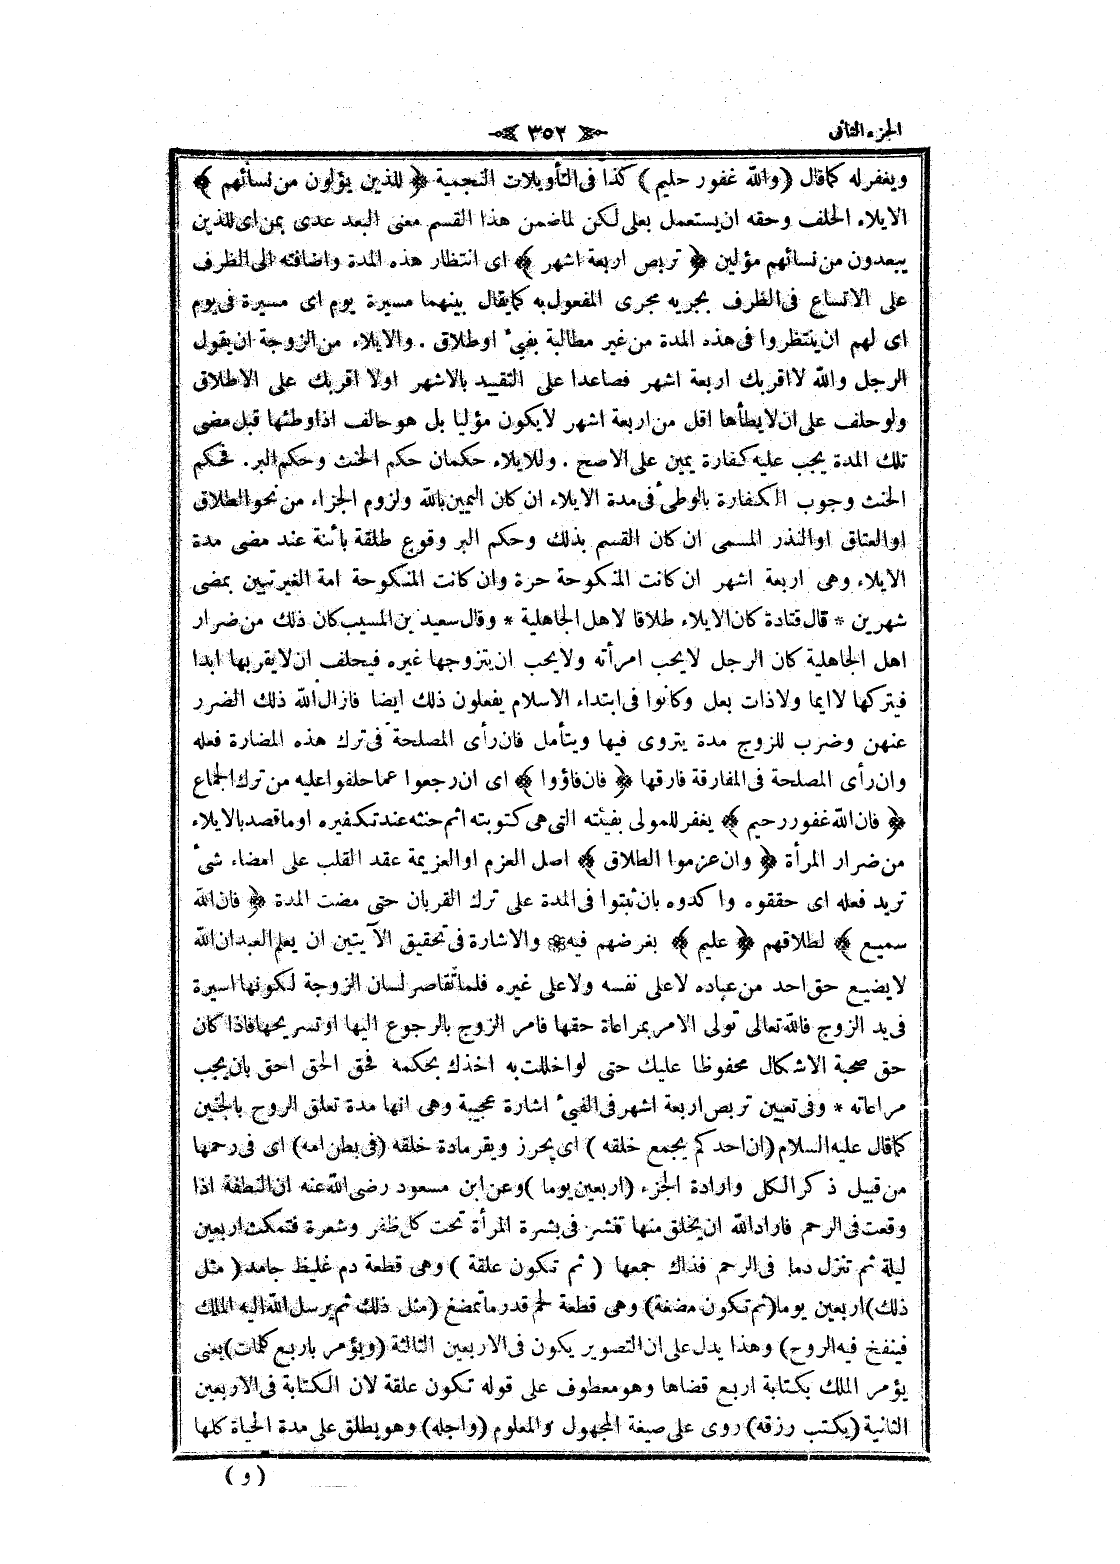 الجزء الثانى
٣٥٢
ويغفرله كماقال (والله غفور حليم) كذا فى التأويلات النجمية ﴿ للذين يؤلون من نسائهم ﴾
الايلاء الحلف وحقه ان يستعمل بعلى لكن لما ضمن هذا القسم معنى البعد عدى بمن اى للذين
يبعدون من نسائهم مؤلين ﴿ تربص اربعة اشهر ﴾ اى انتظار هذه المدة واضافته الى الظرف
على الاتساع فى الظرف بجريه مجرى المفعول به كما يقال بينهما مسيرة يوم اى مسيرة فى يوم
اى لهم ان ينتظروا فى هذه المدة من غير مطالبة بفىء اوطلاق . والايلاء من الزوجة ان يقول
الرجل والله لا اقربك اربعة اشهر فصاعدا على التقييد بالاشهر اولا اقربك على الاطلاق
ولو حلف على ان لايطأها اقل من اربعة اشهر لايكون مؤليا بل هو حالف اذا وطئها قبل مضى
تلك المدة يجب عليه كفارة يمين على الاصح . وللايلاء حكمان حكم الحنث وحكم البر. فحكم
الحنث وجوب الكفارة بالوطئ فى مدة الايلاء ان كان اليمين بالله ولزوم الجزاء من نحو الطلاق
او العتاق او النذر المسمى ان كان القسم بذلك وحكم البر وقوع طلقة بائنة عند مضى مدة
الايلاء وهى اربعة اشهر ان كانت المنكوحة حرة وان كانت المنكوحة امة الغير تبين بمضى
شهرين * قال قتادة كان الايلاء طلاقا لاهل الجاهلية * وقال سعيد بن المسيب كان ذلك من ضرار
اهل الجاهلية كان الرجل لايحب امرأته ولا يحب ان يتزوجها غيره فيحلف ان لايقربها ابدا
فيتركها لا ايما ولاذات بعل وكانوا فى ابتداء الاسلام يفعلون ذلك ايضا فازال الله ذلك الضرر
عنهن وضرب للزوج مدة يتروى فيها ويتأمل فان رأى المصلحة فى ترك هذه المضارة فعله
وان رأى المصلحة فى المفارقة فارقها ﴿ فان فاؤوا ﴾ اى ان رجعوا عما حلفوا عليه من ترك الجماع
﴿ فان الله غفور رحيم ﴾ يغفر للمولى بفيئته التى هى كتوبته اثم حنثه عند تكفيره او ماقصد بالايلاء
من ضرار المرأة ﴿ وان عزموا الطلاق ﴾ اصل العزم او العزيمة عقد القلب على امضاء شئ
تريد فعله اى حققوه واكدوه بان ثبتوا فى المدة على ترك القربان حتى مضت المدة ﴿ فان الله
سميع ﴾ لطلاقهم ﴿ عليم ﴾ بغرضهم فيه والاشارة فى تحقيق الآيتين ان يعلم العبد ان الله
لايضيع حق احد من عباده لا على نفسه ولا على غيره فلما تقاصر لسان الزوجة لكونها اسيرة
فى يد الزوج فالله تعالى تولى الامر بمراعاة حقها فامر الزوج بالرجوع اليها او تسريحها فاذا كان
حق صحبة الاشكال محفوظا عليك حتى لو اخللت به اخذك بحكمه فحق الحق احق بان يجب
مراعاته * وفى تعيين تربص اربعة اشهر فى الفئ اشارة عجيبة وهى انها مدة تعلق الروح بالجنين
كما قال عليه السلام (ان احدكم يجمع خلقه ) اى يحرز ويقر مادة خلقه (فى بطن امه) اى فى رحمها
من قبيل ذكر الكل وارادة الجزء (اربعين يوما )وعن ابن مسعود رضى الله عنه ان النطفة اذا
وقعت فى الرحم فاراد الله ان يخلق منها تنشر فى بشرة المرأة تحت كل ظفر وشعرة فتمكث اربعين
ليلة ثم تنزل دما فى الرحم فذاك جمعها ( ثم تكون علقة ) وهى قطعة دم غليظ جامد( مثل
ذلك)اربعين يوما(ثم تكون مضغة) وهى قطعة لحم قدر ما يمضغ (مثل ذلك ثم يرسل الله اليه الملك
فينفخ فيه الروح) وهذا يدل على ان التصوير يكون فى الاربعين الثالثة (ويؤمر باربع كلمات)يعنى
يؤمر الملك بكتابة اربع قضاها وهو معطوف على قوله تكون علقة لان الكتابة فى الاربعين
الثانية (يكتب رزقه) روى على صيغة المجهول والمعلوم (واجله) وهو يطلق على مدة الحياة كلها
( و )